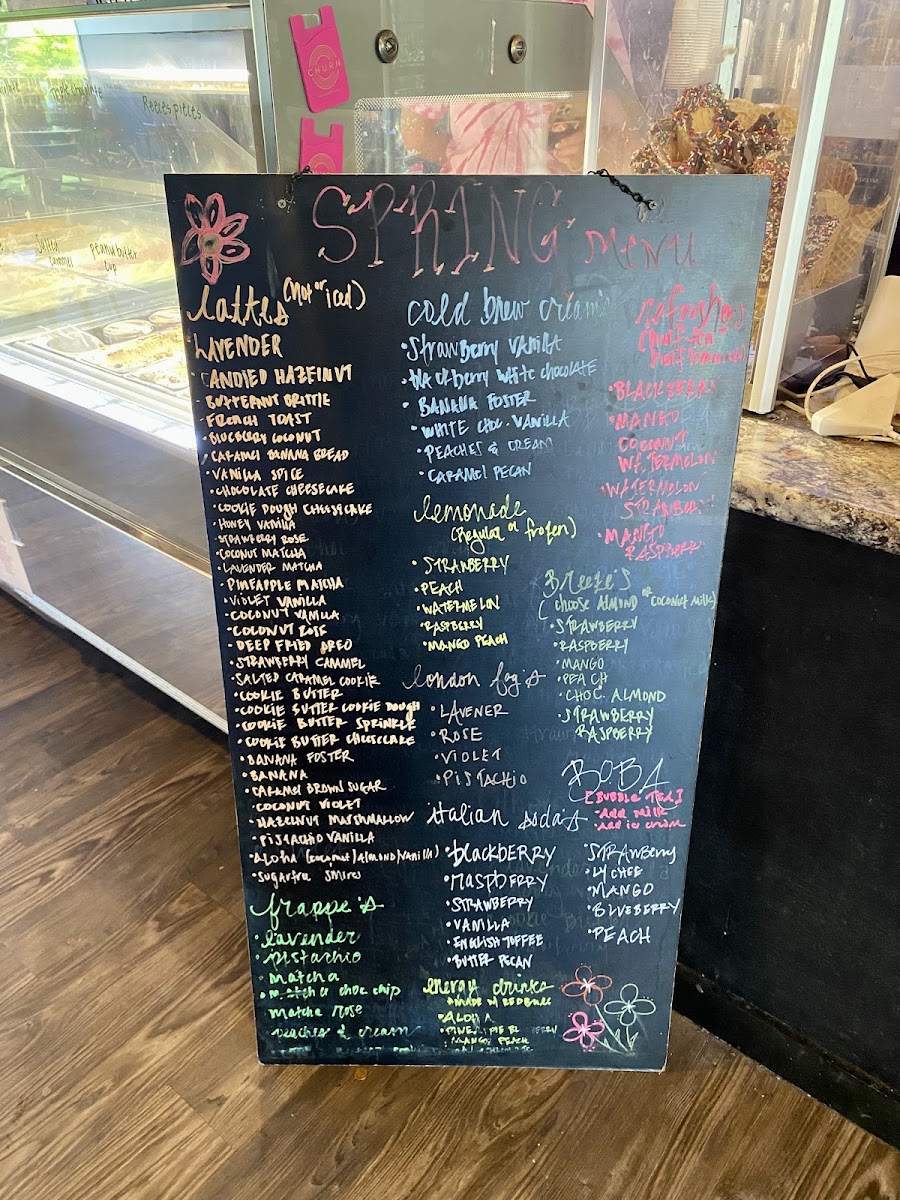 CHURN
Reeses pieces
Salted
caramel
peanut butter
cup
SPRING MENU
Lattes (hot or iced)
LAVENDER
CANDIED HAZELNUT
BUTTERNUT BRITTLE
FRENCH TOAST
BLUEBERRY COCONUT
CARAMEL BANANA BREAD
VANILLA SPICE
CHOCOLATE CHEESECAKE
COOKIE DOUGH CHEESECAKE
HONEY VANILLA
STRAWBERRY ROSE
COCONUT MATCHA
LAVENDER MATCHA
PINEAPPLE MATCHA
VIOLET VANILLA
COCONUT VANILLA
COCONUT ROSE
DEEP FRIED OREO
STRAWBERRY CARAMEL
SALTED CARAMEL COOKIE
COOKIE BUTTER
COOKIE BUTTER COOKIE DOUGH
COOKIE BUTTER SPRINKLE
COOKIE BUTTER CHEESECAKE
BANANA FOSTER
BANANA
CARAMEL BROWN SUGAR
COCONUT VIOLET
HAZELNUT MARSHMALLOW
PISTACHIO VANILLA
ALOHA (COCONUT/ALMOND/VANILLA)
frappe's
lavender
pistachio
matcha
matcha choc chip
matcha rose
peaches & cream
cold brew cream's
Strawberry VANILLA
blackberry white chocolate
BANANA FOSTER
WHITE CHOC. VANILLA
PEACHES & CREAM
CARAMEL PECAN
Lemonade
(Regular or frozen)
STRAWBERRY
PEACH
WATERMELON
RASPBERRY
MANGO PEACH
London fog's
LAVENER
ROSE
VIOLET
PISTACHIO
italian soda's
blackberry
raspberry
STRAWBERRY
VANILLA
ENGLISH TOFFEE
BUTTER PECAN
energy drinks
ALOHA
MANGO PEACH
refreshers
BLACKBERRY
MANGO
COCONUT
WATERMELON
WATERMELON
STRAWBERRY
MANGO
RASPBERRY
Breeze's
(choose ALMOND or COCONUT MILK)
STRAWBERRY
RASPBERRY
MANGO
PEACH
CHOC. ALMOND
STRAWBERRY
RASPBERRY
BOBA
[BUBBLE TEA]
ADD MILK
ADD ICE CREAM
STRAWBERRY
LYCHEE
MANGO
BLUEBERRY
PEACH